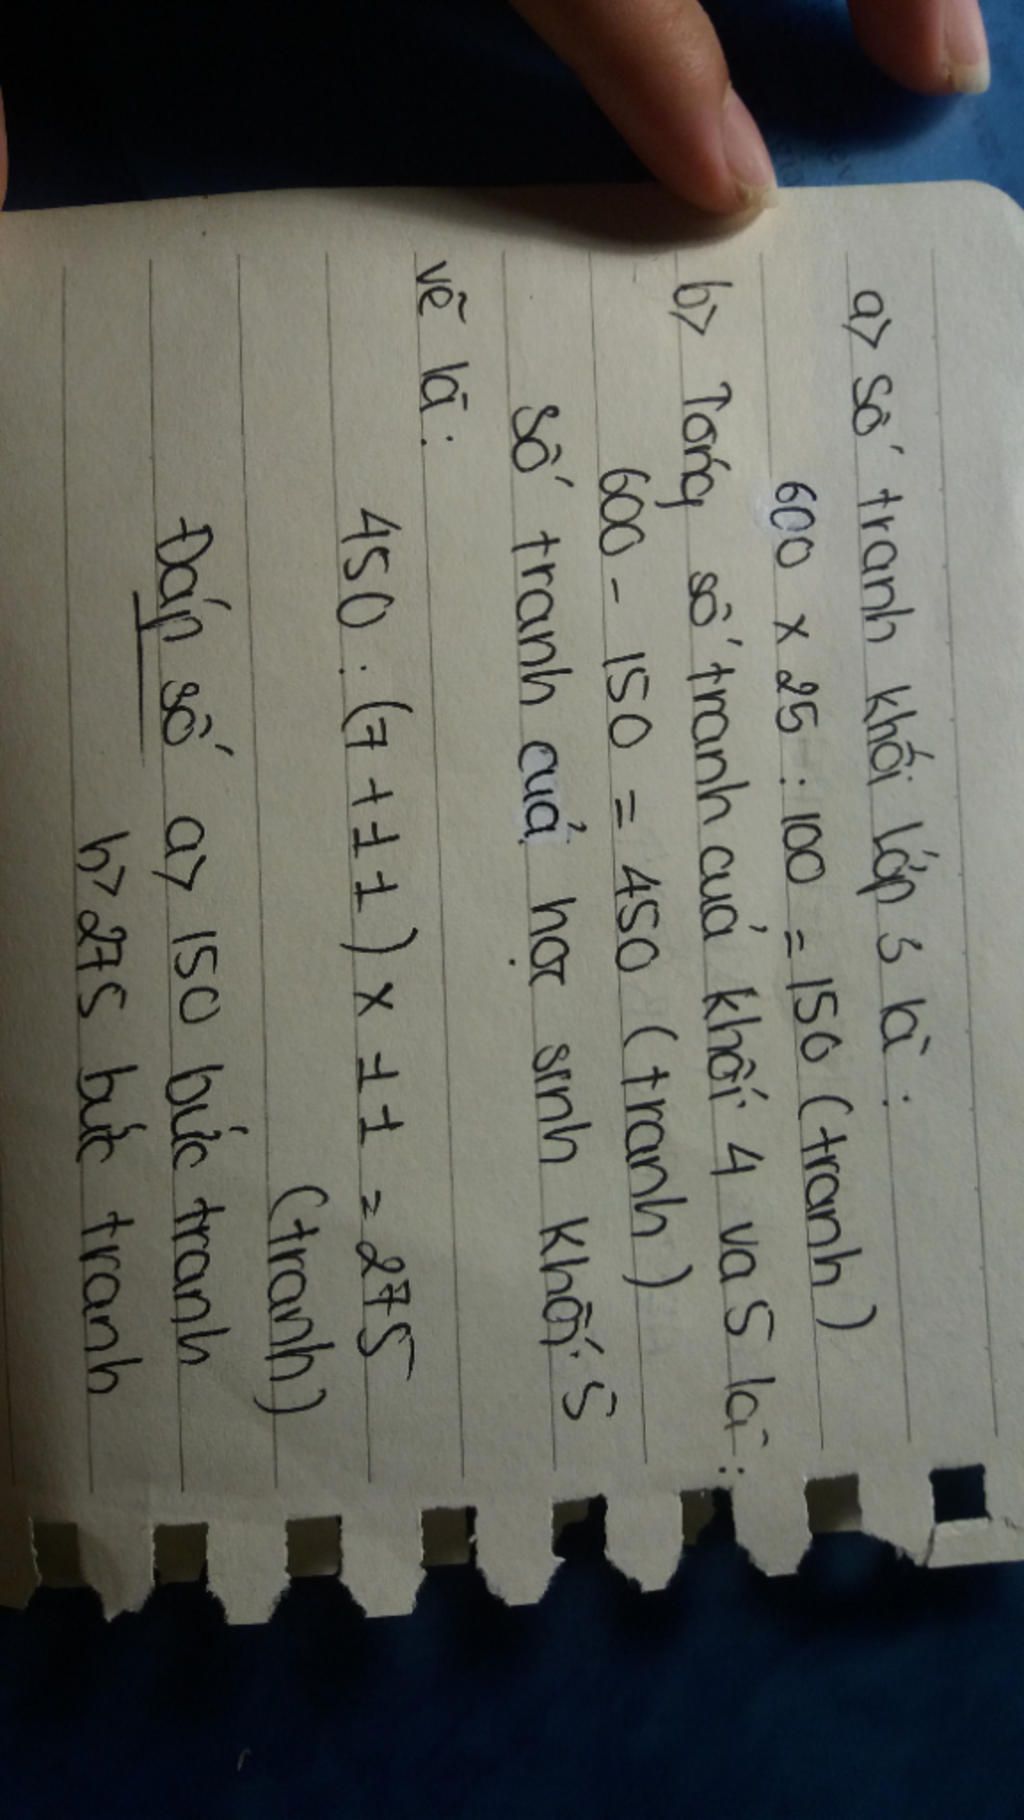 a> Số tranh khối lớp 3 là:
600 x 25 : 100 = 150 (tranh)
b> Tổng số tranh của khối 4 va 5 là:
600 - 150 = 450 (tranh)
Số tranh của học sinh khối 5
vẽ là:
450 : (7 + 11) x 11 = 275
(tranh)
Đáp số a> 150 bức tranh
b> 275 bức tranh